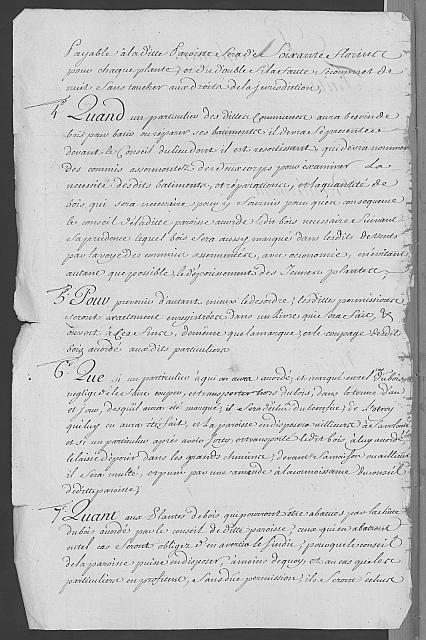 Payable à laditte Paroisse sera de Soixante Florins
pour chaque plante, et du double si la faute se commet de
nuit sans toucher aux droits de la jurisdiction,
4.° Quand un particulier des dittes Communes aura besoin de
bois pour batir ou réparer ses batiments il devra se presenter
devant le Conseil du lieu dont il est ressortissant, qui devra nommer
des commis assermentés de deux corps pour examiner La
necessité des dits batiments, et réparations, et la quantité de
bois, qui sera necessaire pour y fournir pour qu'en consequence
le conseil de laditte paroisse acorde le dit bois necessaire suivant
sa prudence lequel bois sera aussy marqué dans les dits
par la voye des commis assermentés, avec oeconomie, en évitant
autant que possible le déperissement des Jeunes plantes
5.° Pour prevenir d'autant mieux le desordre, les dittes permissions
seront exactement enregistrées dans un Livre qui sera fait, &
ouvert à ces fins, de même que la marque, et le coupage des dit
bois acordé aux dits particuliers
6.° Que si un particulier à qui on aura acordé, et marqué du bois
neglige de le faire couper, et transporter hors du bois, dans le terme d'an
et jour, des qu'il aura été marqué, il sera déchu du benefice de
qui luy en aura été fait, et la paroisse en disposera ailleurs à sa volonté
et si un particulier après avoir sorty, et transporté le dit bois à luy acordé
le laisse déperir dans les grands chemins, devant sa maison ou ailleurs
il sera multé, et puni par une amande à la connoissance du conseil
de ditte paroisse,
7.° Quant aux Plantes de bois qui pourront être abatues par la
du bois acordé par le conseil de ditte paroisse, ceux qui en abatront
en tel cas seront obligez d'en avertir le sindic, pour que le conseil
de la paroisse puisse en disposer, à moins de quoy, et au cas que les
particuliers en profitent, sans due permission, ils seront